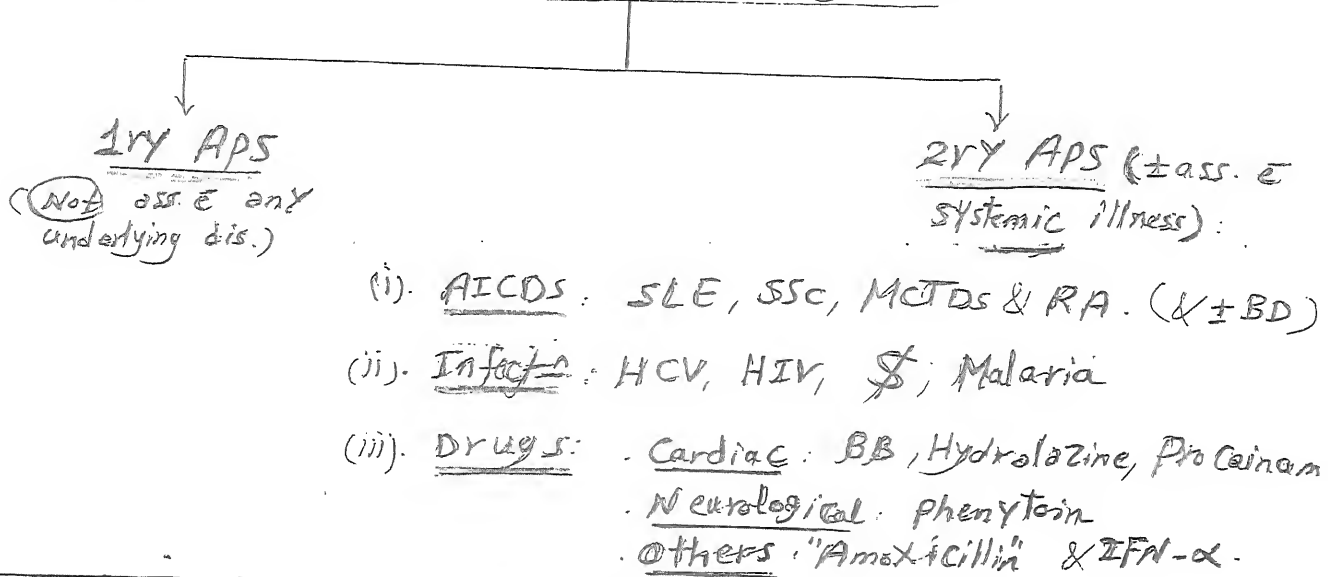 1ry APS
(Not ass. ē any
underlying dis.)
2ry APS (±ass. ē
systemic illness):
(i). AICDs: SLE, SSc, MCTDs & RA. (& ± BD)
(ii). Infectn: HCV, HIV, $, Malaria
(iii). Drugs: . Cardiac: BB, Hydralazine, Procainam
. Neurological: phenytoin
. Others: "Amoxicillin" & IFN-α.